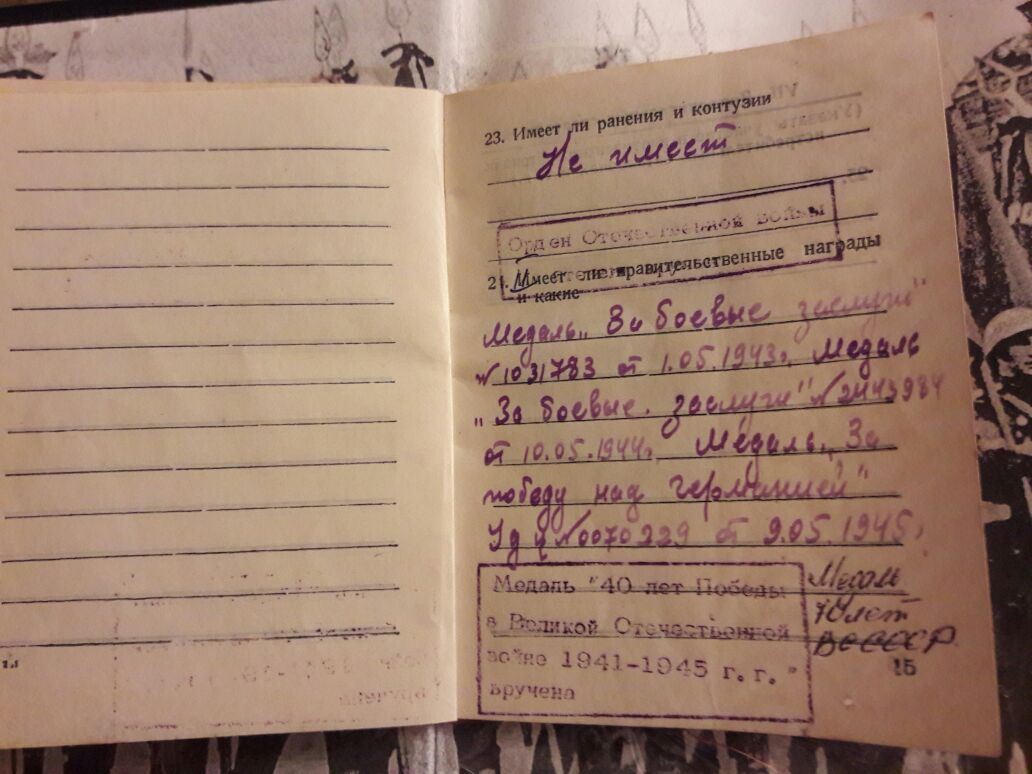 23. Имеет ли ранения и контузии
Не имеет
Орден Отечественной войны
степени
24. Имеет ли правительственные награды
и какие
Медаль „За боевые заслуги"
№1031783 от 1.05.1943г. Медаль
„За боевые заслуги" №2443984
от 10.05.1944г. Медаль „За
победу над Германией"
Уд №0070229 от 9.05.1945г.
Медаль "40 лет Победы
в Великой Отечественной
войне 1941-1945 г.г."
вручена
Медаль
70 лет
ВС СССР
15